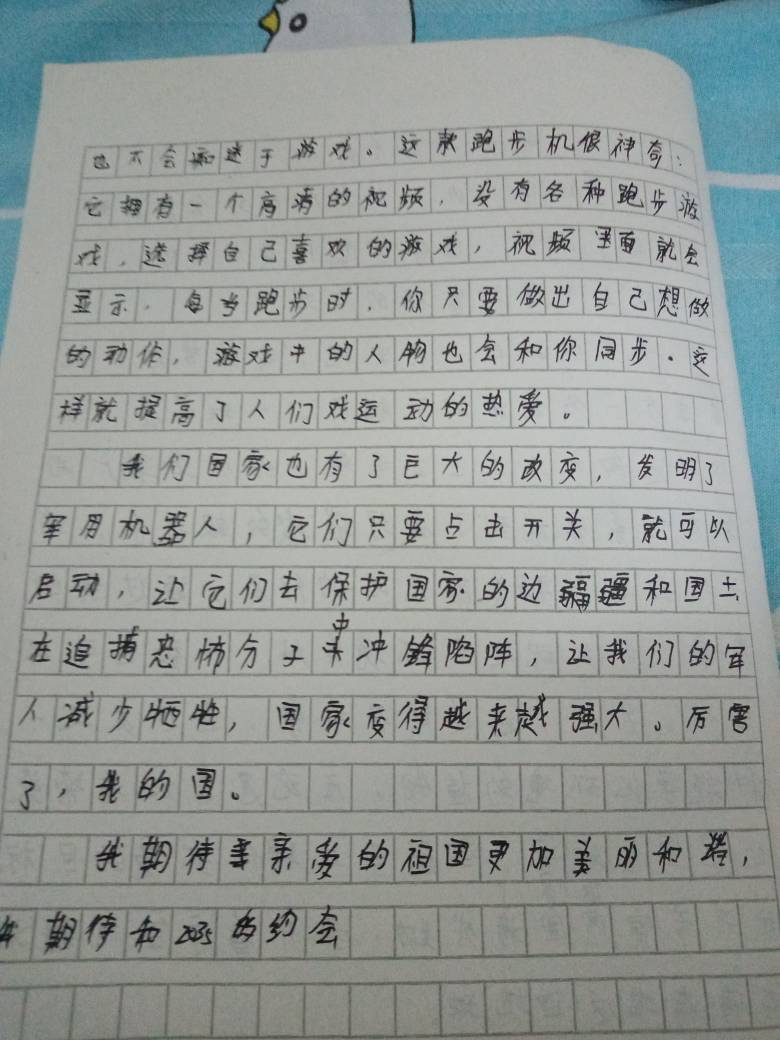 也不会痴迷于游戏。这款跑步机很神奇:
它拥有一个高清的视频,没有各种跑步游
戏,选择自己喜欢的游戏,视频里面就会
显示。每当跑步时,你只要做出自己想做
的动作,游戏中的人物也会和你同步。这
样就提高了人们戏运动的热爱。
我们国家也有了巨大的改变,发明了
军用机器人,它们只要点击开关,就可以
启动,让它们去保护国家的边疆疆和国土
在追捕恐怖分子中冲锋陷阵,让我们的军
人减少牺牲,国家变得越来越强大。厉害
了,我的国。
我期待亲爱的祖国更加美丽和谐,
我期待和2035的约会